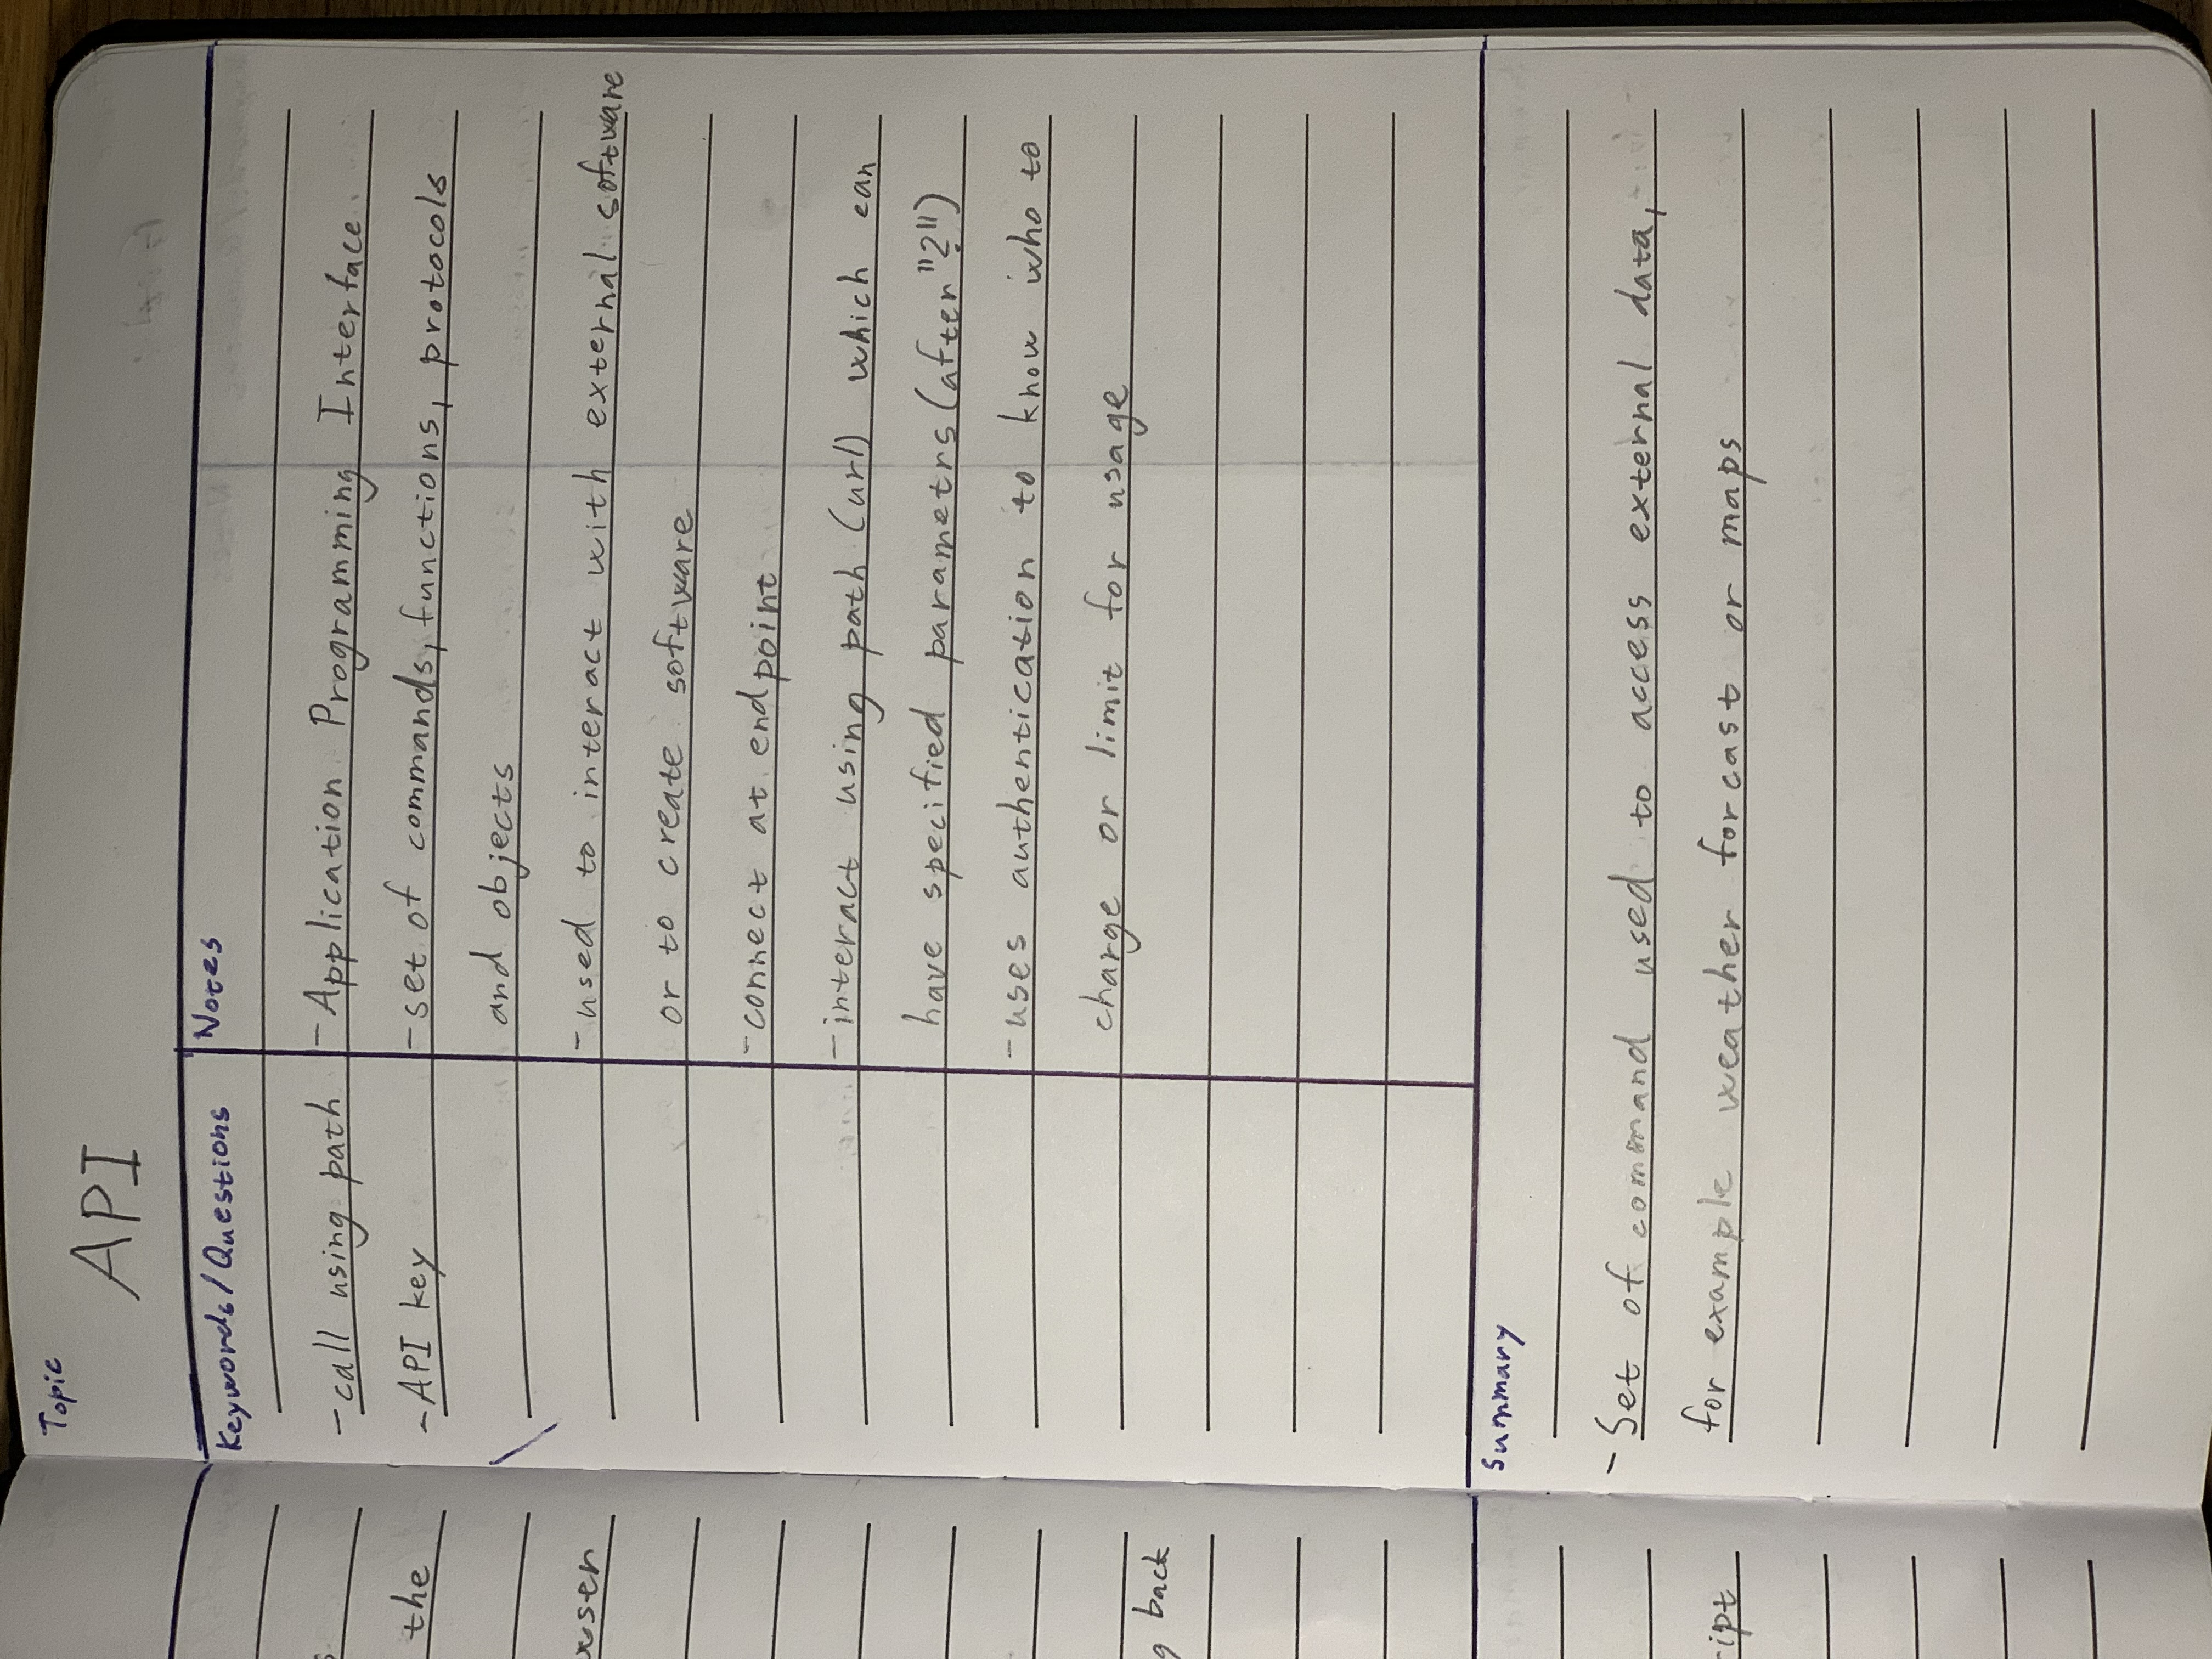 Topic
API
Keywords/Questions
- call using path
- API key
Notes
- Application Programming Interface
- set of commands, functions, protocols
and objects
- used to interact with external software
or to create software
- connect at endpoint
- interact using path (url) which can
have specified parametrs (after "?")
- uses authentication to know who to
charge or limit for usage
Summary
- Set of command used to access external data,
for example weather forcast or maps
the
back